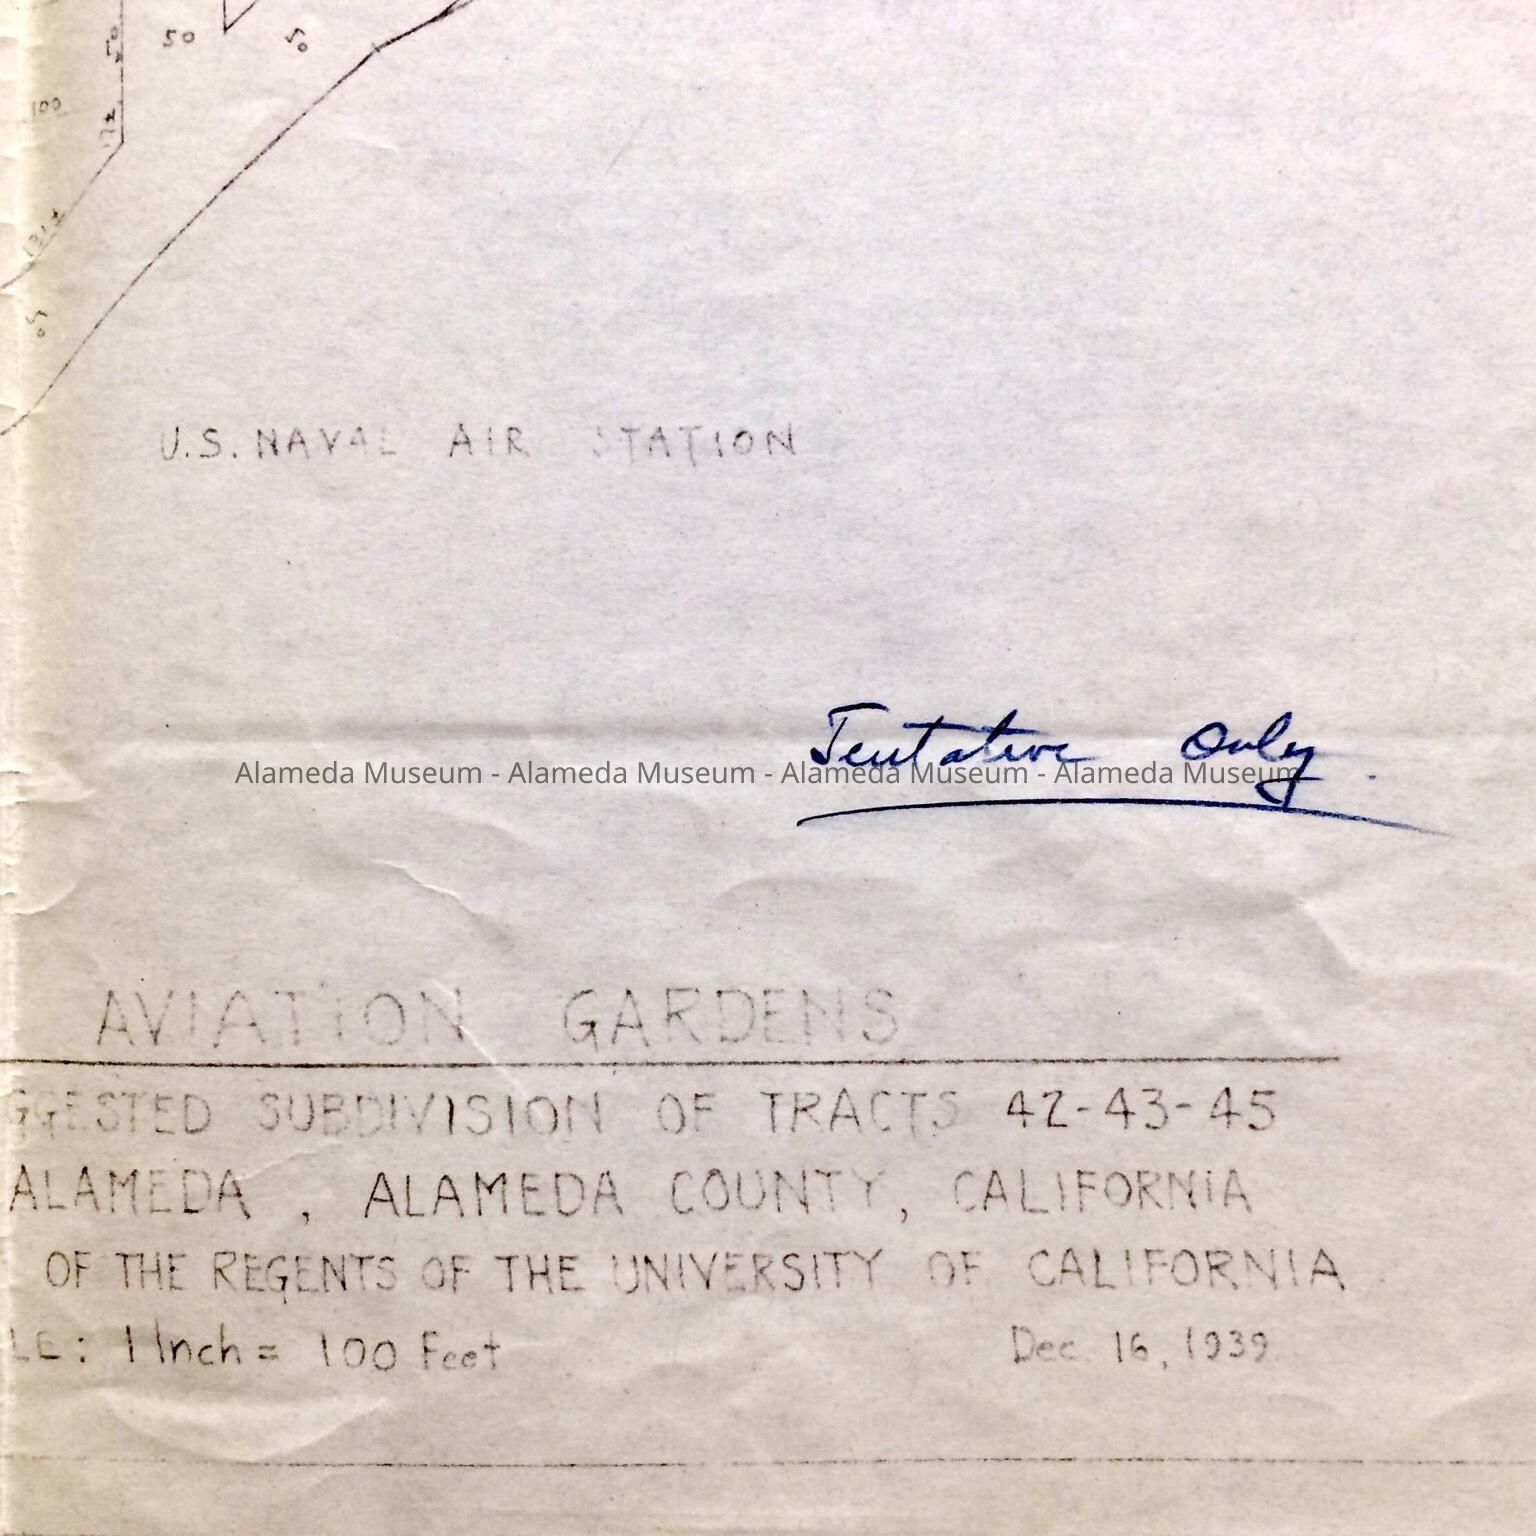 50
50
50
100
131±
50
U.S. NAVAL AIR STATION
Tentative Only.
Alameda Museum - Alameda Museum - Alameda Museum - Alameda Museum
AVIATION GARDENS
GGESTED SUBDIVISION OF TRACTS 42-43-45
ALAMEDA, ALAMEDA COUNTY, CALIFORNIA
OF THE REGENTS OF THE UNIVERSITY OF CALIFORNIA
LE: 1 Inch = 100 Feet Dec 16, 1939